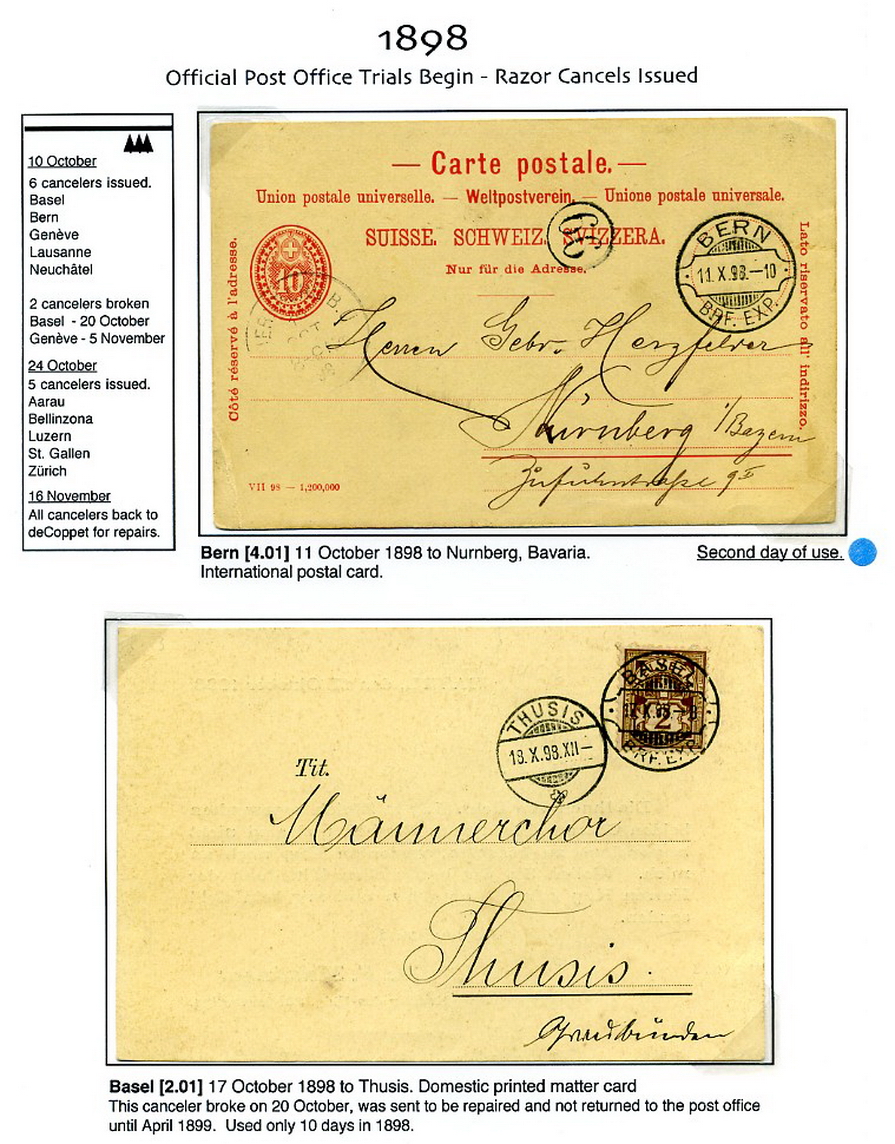 1898
Official Post Office Trials Begin - Razor Cancels Issued
10 October
6 cancelers issued.
Basel
Bern
Genève
Lausanne
Neuchâtel
2 cancelers broken
Basel - 20 October
Genève - 5 November
24 October
5 cancelers issued.
Aarau
Bellinzona
Luzern
St. Gallen
Zürich
16 November
All cancelers back to
deCoppet for repairs.
— Carte postale. —
Union postale universelle. — Weltpostverein. — Unione postale universale.
SUISSE. SCHWEIZ. SVIZZERA.
Nur für die Adresse.
Côté réservé à l'adresse.
Lato riservato all' indirizzo.
10
BERN
11.X.98.—10
BRF. EXP.
Herren Gebr. Herzfelder
Nürnberg i/Bayern
9 II
VII 98 — 1,200,000
Bern [4.01] 11 October 1898 to Nurnberg, Bavaria.
Second day of use.
International postal card.
BASEL
2
X.98—
BRF. EXP.
THUSIS
18.X.98.XII—
Tit.
Männerchor
Thusis.
Graubünden
Basel [2.01] 17 October 1898 to Thusis. Domestic printed matter card
This canceler broke on 20 October, was sent to be repaired and not returned to the post office
until April 1899. Used only 10 days in 1898.